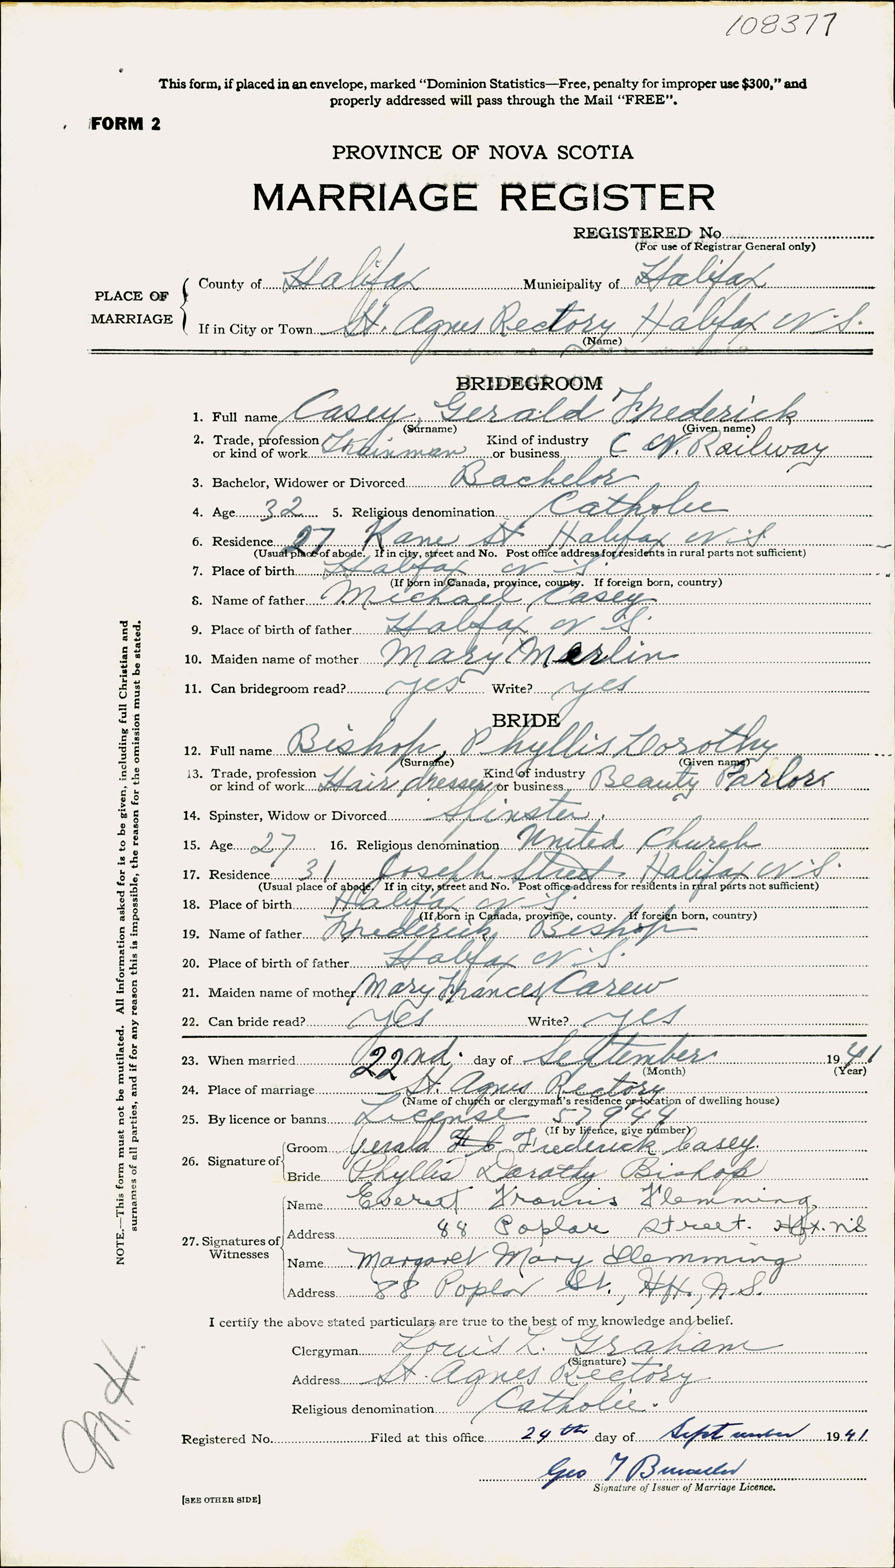 108377
This form, if placed in an envelope, marked "Dominion Statistics—Free, penalty for improper use $300," and
properly addressed will pass through the Mail "FREE".
FORM 2
PROVINCE OF NOVA SCOTIA
MARRIAGE REGISTER
REGISTERED No
(For use of Registrar General only)
PLACE OF MARRIAGE
County of Halifax Municipality of Halifax
If in City or Town St. Agnes Rectory Halifax N.S.
(Name)
BRIDEGROOM
1. Full name Casey, Gerald Frederick
(Surname) (Given name)
2. Trade, profession or kind of work Trainman Kind of industry or business C.N. Railway
3. Bachelor, Widower or Divorced Bachelor
4. Age 32 5. Religious denomination Catholic
6. Residence 27 Kane St Halifax N.S.
(Usual place of abode. If in city, street and No. Post office address for residents in rural parts not sufficient)
7. Place of birth Halifax N.S.
(If born in Canada, province, county. If foreign born, country)
8. Name of father Michael Casey
9. Place of birth of father Halifax N.S.
10. Maiden name of mother Mary Merlin
11. Can bridegroom read? yes Write? yes
BRIDE
12. Full name Bishop, Phyllis Dorothy
(Surname) (Given name)
13. Trade, profession or kind of work Hair dresser Kind of industry or business Beauty Parlors
14. Spinster, Widow or Divorced Spinster
15. Age 27 16. Religious denomination United Church
17. Residence 31 Joseph Street Halifax N.S.
(Usual place of abode. If in city, street and No. Post office address for residents in rural parts not sufficient)
18. Place of birth Halifax N.S.
(If born in Canada, province, county. If foreign born, country)
19. Name of father Frederick Bishop
20. Place of birth of father Halifax N.S.
21. Maiden name of mother Mary Frances Carew
22. Can bride read? yes Write? yes
23. When married 22nd. day of September 1941
(Month) (Year)
24. Place of marriage St. Agnes Rectory
(Name of church or clergyman's residence or location of dwelling house)
25. By licence or banns License 57944
(If by licence, give number)
26. Signature of Groom Gerald Frederick Casey.
Bride Phyllis Dorothy Bishop
27. Signatures of Witnesses
Name Everett Francis Flemming
Address 88 Poplar Street. Hfx. N.S
Name Margaret Mary Flemming
Address 88 Poplar St., Hfx., N.S.
I certify the above stated particulars are true to the best of my knowledge and belief.
Clergyman Louis L. Graham
(Signature)
Address St. Agnes Rectory
Religious denomination Catholic.
Registered No. Filed at this office 24th day of September 1941
Geo
Signature of Issuer of Marriage Licence.
[SEE OTHER SIDE]
NOTE.—This form must not be mutilated. All Information asked for is to be given, including full Christian and
surnames of all parties, and if for any reason this is impossible, the reason for the omission must be stated.
M.H.